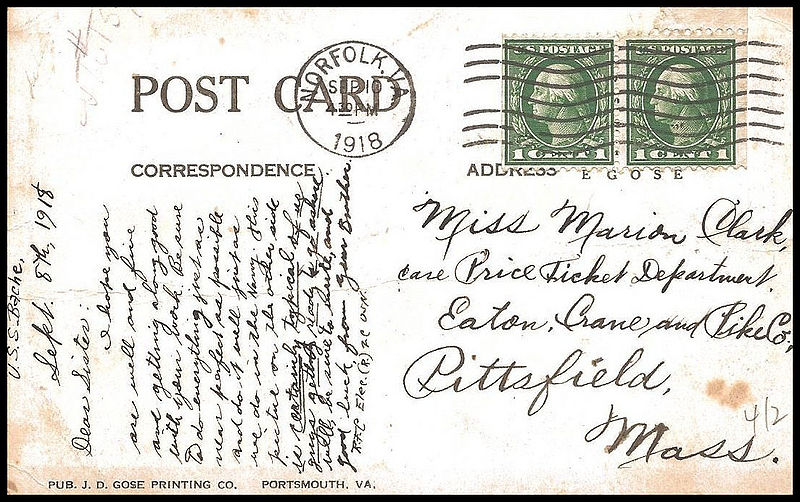 POST CARD
NORFOLK, VA.
SEP 10
4 30 PM
1918
U.S. POSTAGE
U.S. POSTAGE
1 CENT 1
1 CENT 1
CORRESPONDENCE
ADDRESS
E GOSE
U.S.S. Bache,
Sept. 8th, 1918
Dear Sister:
I hope you
are well and fine
and getting along good
with your work. Be sure
to do everything just as
near perfect as possible
and do it well just as
we do in the Navy. This
picture on the other side
is certainly typical of us
guns getting ready to go ashore
Well, be sure to write, and
good luck from your brother
Elec. (R) 2C USN
Miss Marion Clark,
care Price Ticket Department
Eaton, Crane, and Pike Co.,
Pittsfield,
Mass.
4/2
PUB. J. D. GOSE PRINTING CO. PORTSMOUTH, VA.